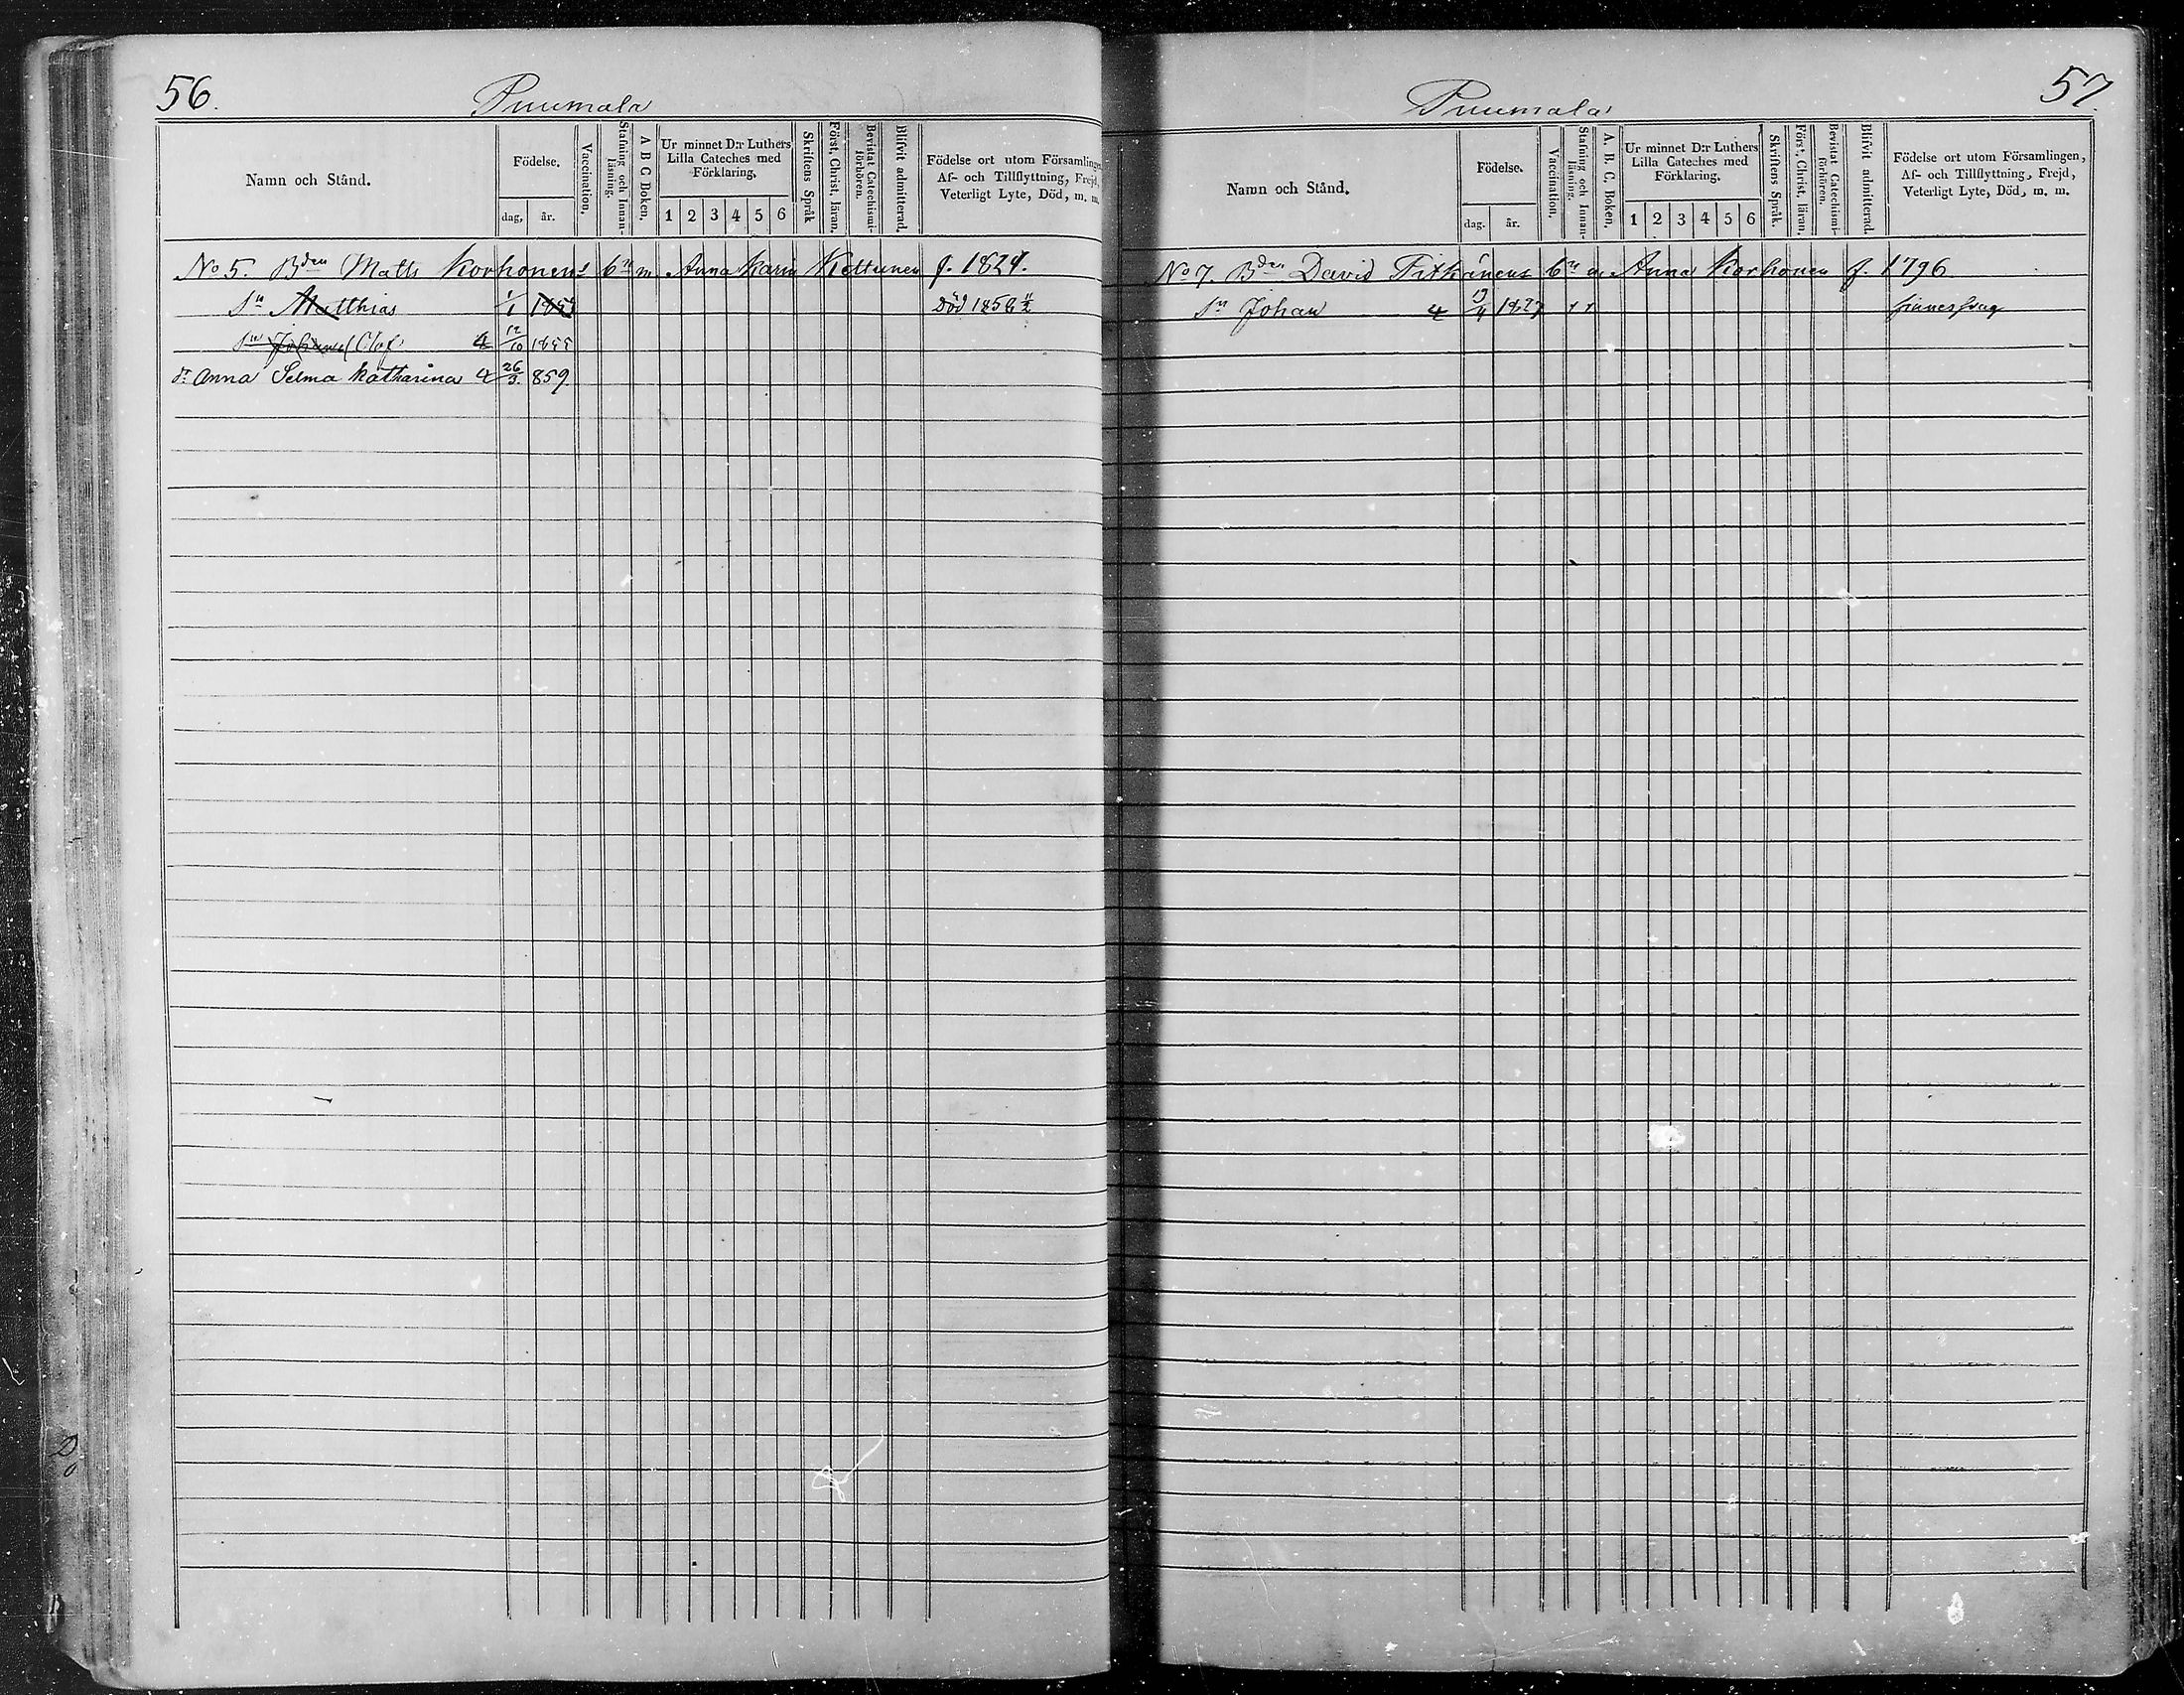 56.
Puumala
Namn och Stånd.
Födelse.
dag, år.
Vaccination.
Stafning och Innanläsning.
A B C Boken.
Ur minnet D:r Luthers Lilla Cateches med Förklaring.
1 2 3 4 5 6
Skriftens Språk
Först. Christ. läran.
Bevistat Catechismiförhören.
Blifvit admitterad.
Födelse ort utom Församlingen
Af- och Tillflyttning, Frejd,
Veterligt Lyte, Död, m. m.
No 5. Bden Matts Korhonens 6n m Anna Karin Kettunen f. 1824.
Sn Matthias 1/1 Död 1856
Sn Johannes Olof 4 12/10 1855
dr Anna Selma Katharina 4 26/3 859
57.
Puumala
Namn och Stånd.
Födelse.
dag. år.
Vaccination.
Stafning och Innanläsning.
A. B. C. Boken.
Ur minnet D:r Luthers Lilla Cateches med Förklaring.
1 2 3 4 5 6
Skriftens Språk.
Först. Christ. läran.
Bevistat Catechismiförhören.
Blifvit admitterad.
Födelse ort utom Församlingen,
Af- och Tillflyttning, Frejd,
Veterligt Lyte, Död, m. m.
No 7. Bden David Pitkänens 6n m Anna Korhonen f. 1796
Sn Johan 4 1827